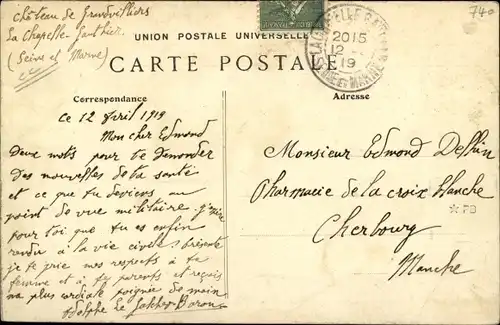 château de Grandvilliers
La Chapelle Gauthier
(Seine et Marne)
740
UNION POSTALE UNIVERSELLE
LA CHAPELLE GAUTHIER
2015
12
19
SEINE ET MARNE
CARTE POSTALE
Correspondance
Ce 12 avril 1919
Mon cher Edmond
Deux mots pour te demander
des nouvelles de ta santé
et ce que tu deviens au
point de vue militaire
pour toi que tu es enfin
rendu à la vie civile présente
je te prie mes respects à ta
femme et à tes parents et reçois
ma plus cordiale poignée de main
Adolphe Le
Adresse
Monsieur Edmond
Pharmacie de la croix blanche
*PB
Cherbourg
Manche